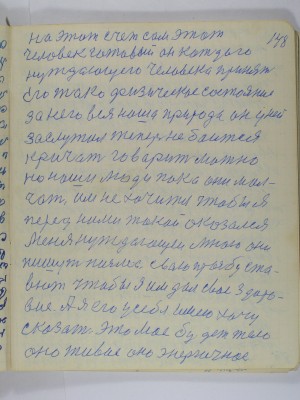 148
на этот счет сам этот
человек готовый он каждого
нуждающего человека принять
его тако физическое состояние
за него вся наша природа он у ней
заслужил теперь не боится
кричат говорит можно
но наши люди пока они мол-
чат, им не хочится чтобы я
перед ними такой оказался
Меня нуждающие мною они
пишут письма сваю прозьбу ста-
вют чтобы я им дал свое здоро-
вие. А я его у себя имею хочу
сказат. Это мое будет тело
оно живое оно энергичное